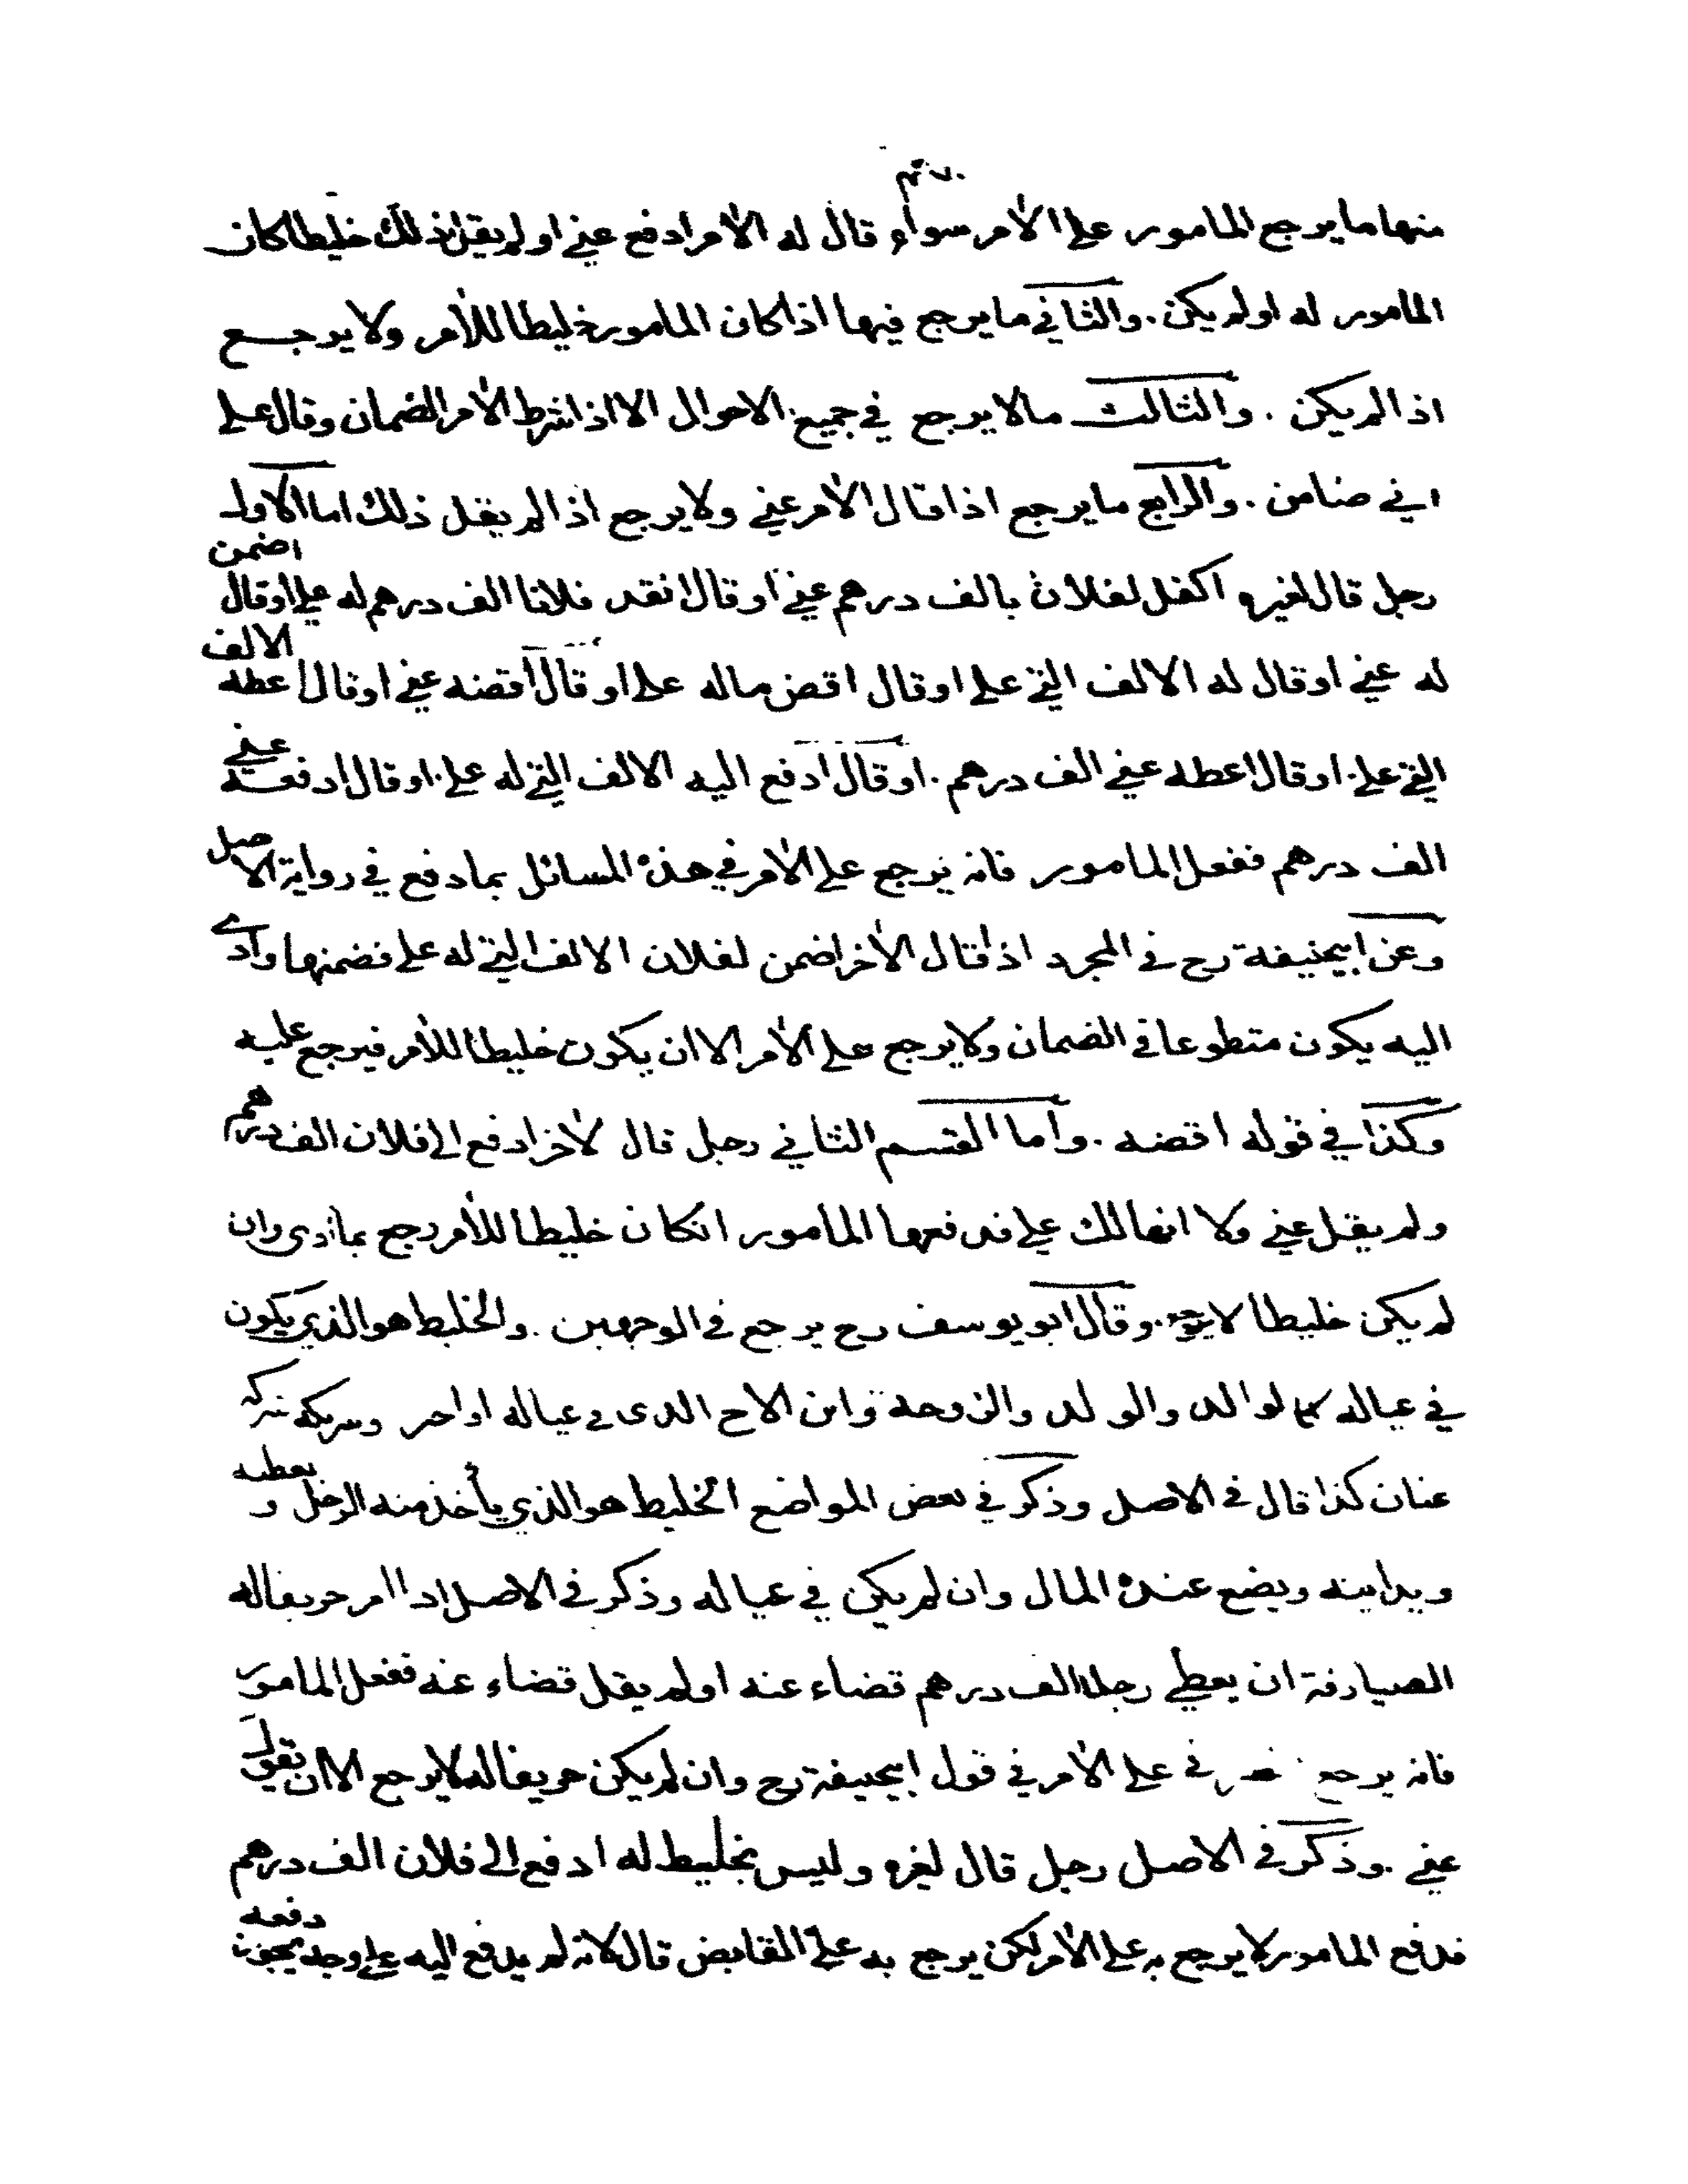 منها ما يرجع المامور على الآمر سواء قال له الآمر ادفع عني او لم يقل ذلك خليطا كان
المامور له او لم يكن . والثاني ما يرجع فيها اذا كان المامور خليطا للآمر ولا يرجع
اذا لم يكن . والثالث ما لا يرجع في جميع الاحوال الا اذا شرط الآمر الضمان وقال على
اني ضامن . والرابع ما يرجع اذا قال الآمر عني ولا يرجع اذا لم يقل ذلك اما الاول
رجل قال لغيره اكفل لفلان بالف درهم عني او قال انقد فلانا الف درهم له علي او قال اضمن
له عني او قال له الالف التي علي او قال اقض ماله علي او قال اقضه عني او قال اعطه الالف
التي علي . او قال اعطه عني الف درهم . او قال ادفع اليه الالف التي له علي . او قال ادفع عني
الف درهم ففعل المامور فانه يرجع على الآمر في هذه المسائل بما دفع في رواية الاصل
وعن ابيحنيفة رح في المجرد اذا قال لآخر اضمن لفلان الالف التي له علي فضمنها وادى
اليه يكون متطوعا في الضمان ولا يرجع على الآمر الا ان يكون خليطا للآمر فيرجع عليه
وكذا في قوله اقضه . واما القسم الثاني رجل قال لآخر ادفع الى فلان الف درهم
ولم يقل عني ولا انها لك علي فدفعها المامور انكان خليطا للآمر رجع بما ادى وان
لم يكن خليطا لا يرجع . وقال ابو يوسف رح يرجع في الوجهين . والخليط هو الذي يكون
في عياله كالوالد والولد والزوجة وابن الاخ الدى في عياله او احر وشريكه شركة
عنان كذا قال في الاصل وذكر في بعض المواضع الخليط هو الذي يأخذ منه الرجل و يعطيه
ويداينه ويضع عنده المال وان لم يكن في عياله وذكر في الاصل اذا امر حريفا له
الصيارفة ان يعطي رجلا الف درهم قضاء عنه او لم يقل قضاء عنه ففعل المامور
فانه يرجع على الآمر في قول ابيحنيفة رح وان لم يكن حريفا له لا يرجع الا ان يقول
عني . وذكر في الاصل رجل قال لغيره وليس بخليط له ادفع الى فلان الف درهم
فدفع المامور لا يرجع به على الآمر لكن يرجع به على القابض قال لانه لم يدفع اليه على وجه يجوز دفعه